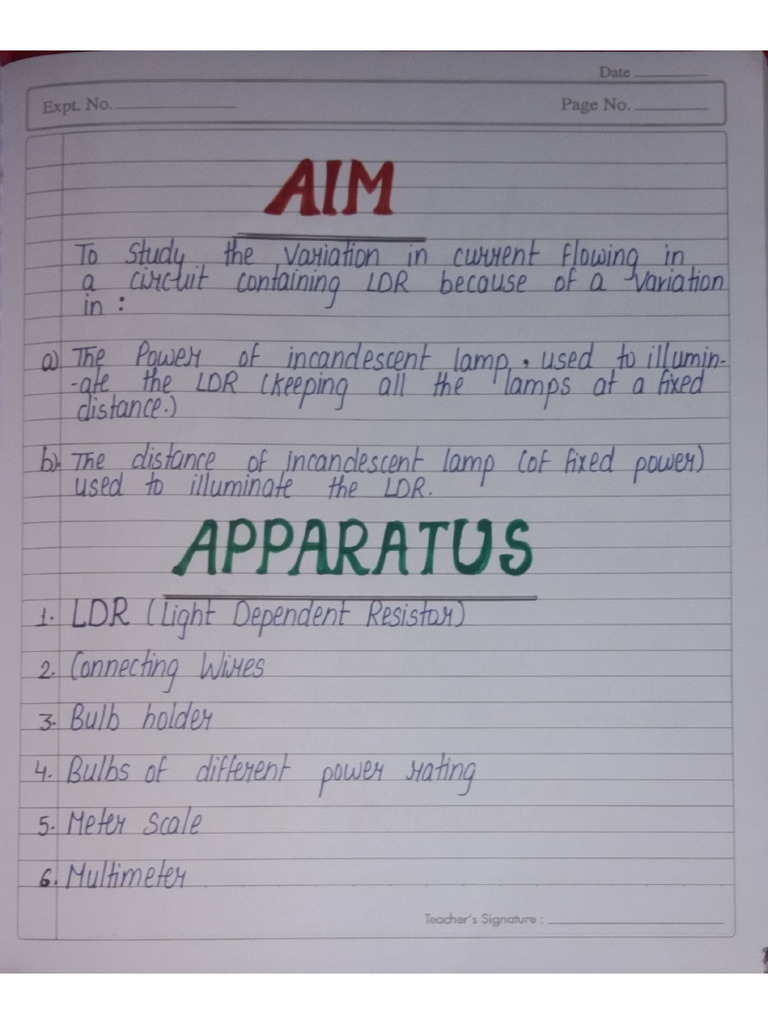 Date
Expt. No.
Page No.
AIM
To study the variation in current flowing in
a circuit containing LDR because of a variation
in :
a) The Power of incandescent lamp, used to illumin-
-ate the LDR (keeping all the lamps at a fixed
distance.)
b) The distance of incandescent lamp (of fixed power)
used to illuminate the LDR.
APPARATUS
1. LDR (Light Dependent Resistor)
2. Connecting Wires
3. Bulb holder
4. Bulbs of different power rating
5. Meter Scale
6. Multimeter
Teacher's Signature :